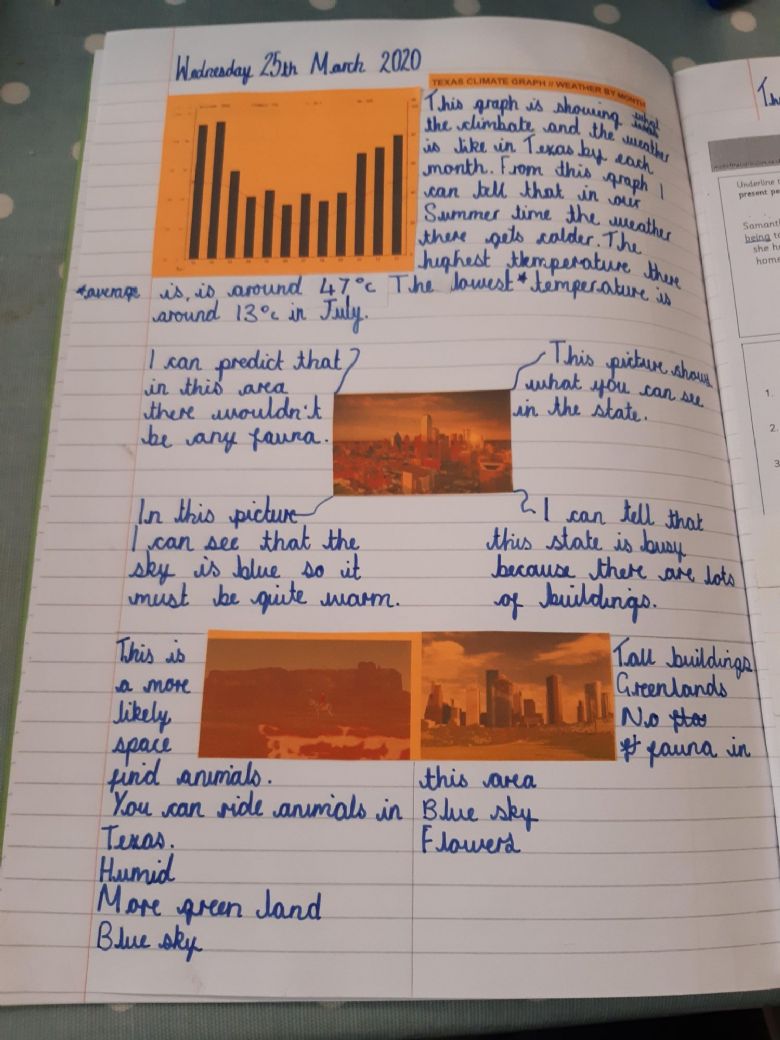 Wednesday 25th March 2020
TEXAS CLIMATE GRAPH // WEATHER BY MONTH
This graph is showing what
the climbate and the weather
is like in Texas by each
month. From this graph I
can tell that in our
Summer time the weather
there gets colder. The
highest temperature there
is, is around 47°c The lowest * temperature is
*average
around 13°c in July.
I can predict that
in this area
there wouldn't
be any fauna.
This picture shows
what you can see
in the state.
In this picture
I can see that the
sky is blue so it
must be quite warm.
I can tell that
this state is busy
because there are lots
of buildings.
This is
a more
likely
space
find animals.
You can ride animals in
Texas.
Humid
More green land
Blue sky
Tall buildings
Greenlands
No
fauna in
this area
Blue sky
Flowers
Underline
present pe
Samant
being to
she h
home
1.
2.
3